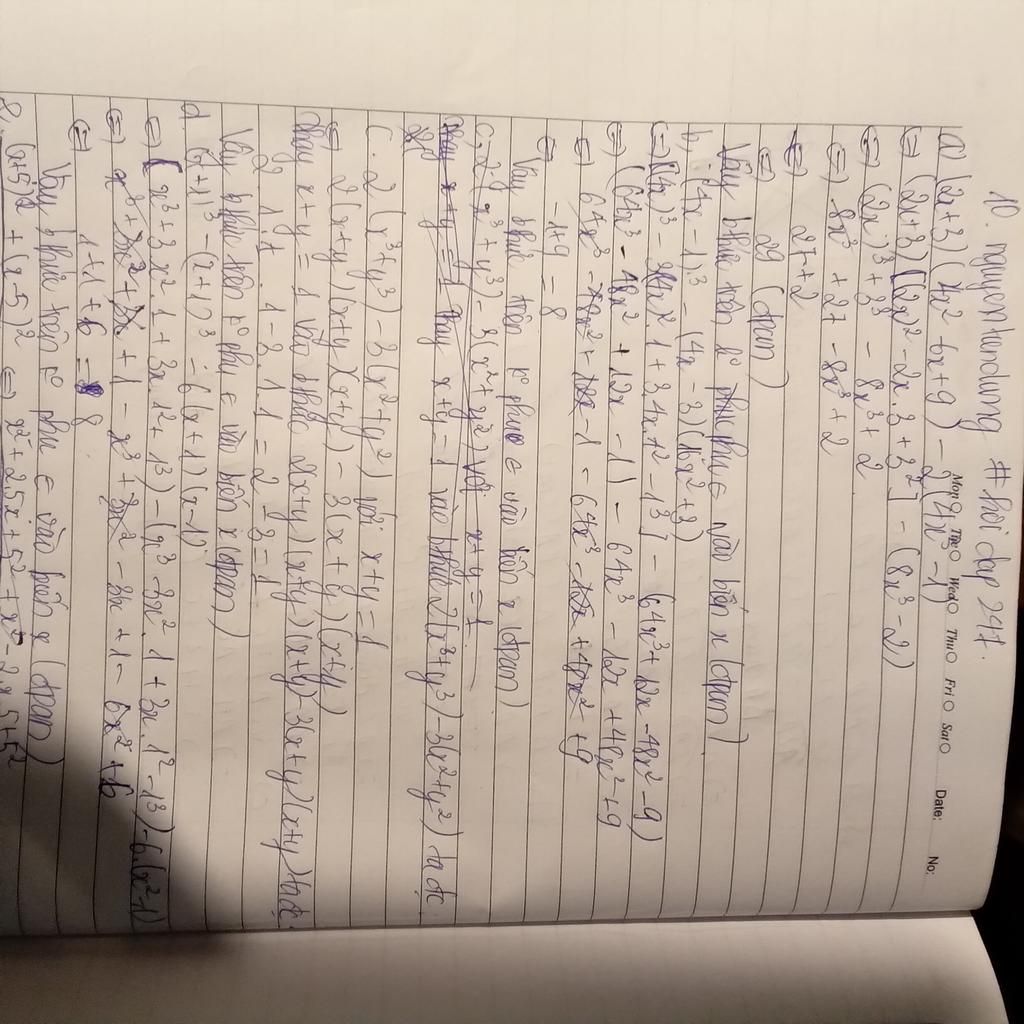 10. nguyenhandung #hoi dap 247.
Mon Tue Wed Thu Fri Sat Date: No:
a) (2x+3)(4x² - 6x + 9) - 2(4x³ - 1)
⇔ (2x+3)[(2x)² - 2x.3 + 3²] - (8x³ - 2)
⇔ (2x)³ + 3³ - 8x³ + 2
⇔ 8x³ + 27 - 8x³ + 2
⇔ 27 + 2
⇔ 29 (dpcm)
Vậy bthức trên k° phụ ∈ vào biến x (dpcm)
b, (4x - 1)³ - (4x - 3)(16x² + 3)
⇔ [(4x)³ - 3.4x².1 + 3.4x.1² - 1³] - (64x³ + 12x - 48x² - 9)
⇔ (64x³ - 48x² + 12x - 1) - 64x³ - 12x + 48x² + 9
⇔ 64x³ - 48x² + 12x - 1 - 64x³ - 12x + 48x² + 9
⇔ -1 + 9 = 8
Vậy bthức trên k° phụ ∈ vào biến x (dpcm)
c, 2(x³ + y³) - 3(x² + y²) với x + y = 1
thay x + y = 1 vào bthức 2(x³ + y³) - 3(x² + y²) ta đc
C. 2(x³ + y³) - 3(x² + y²) với x + y = 1
⇔ 2(x+y)(x+y)(x+y) - 3(x+y)(x+y)
thay x + y = 1 vào bthức 2(x+y)(x+y)(x+y) - 3(x+y)(x+y) ta đc
2. 1. 1. 1 - 3. 1. 1 = 2 - 3 = 1
Vậy bthức trên k° phụ ∈ vào biến x (dpcm)
d. (x+1)³ - (x+1)³ - 6(x+1)(x-1)
⇔ (x³ + 3x².1 + 3x.1² + 1³) - (x³ - 3x².1 + 3x.1² - 1³) - 6.(x² - 1)
⇔ x³ + 3x² + 3x + 1 - x³ + 3x² - 3x + 1 - 6x² + 6
⇔ 1 + 1 + 6 = 8
Vậy bthức trên k° phụ ∈ vào biến x (dpcm)
(x+5)² + (x-5)² ⇔ x² + 25x + 5² + x² - 2.x.5 + 5²